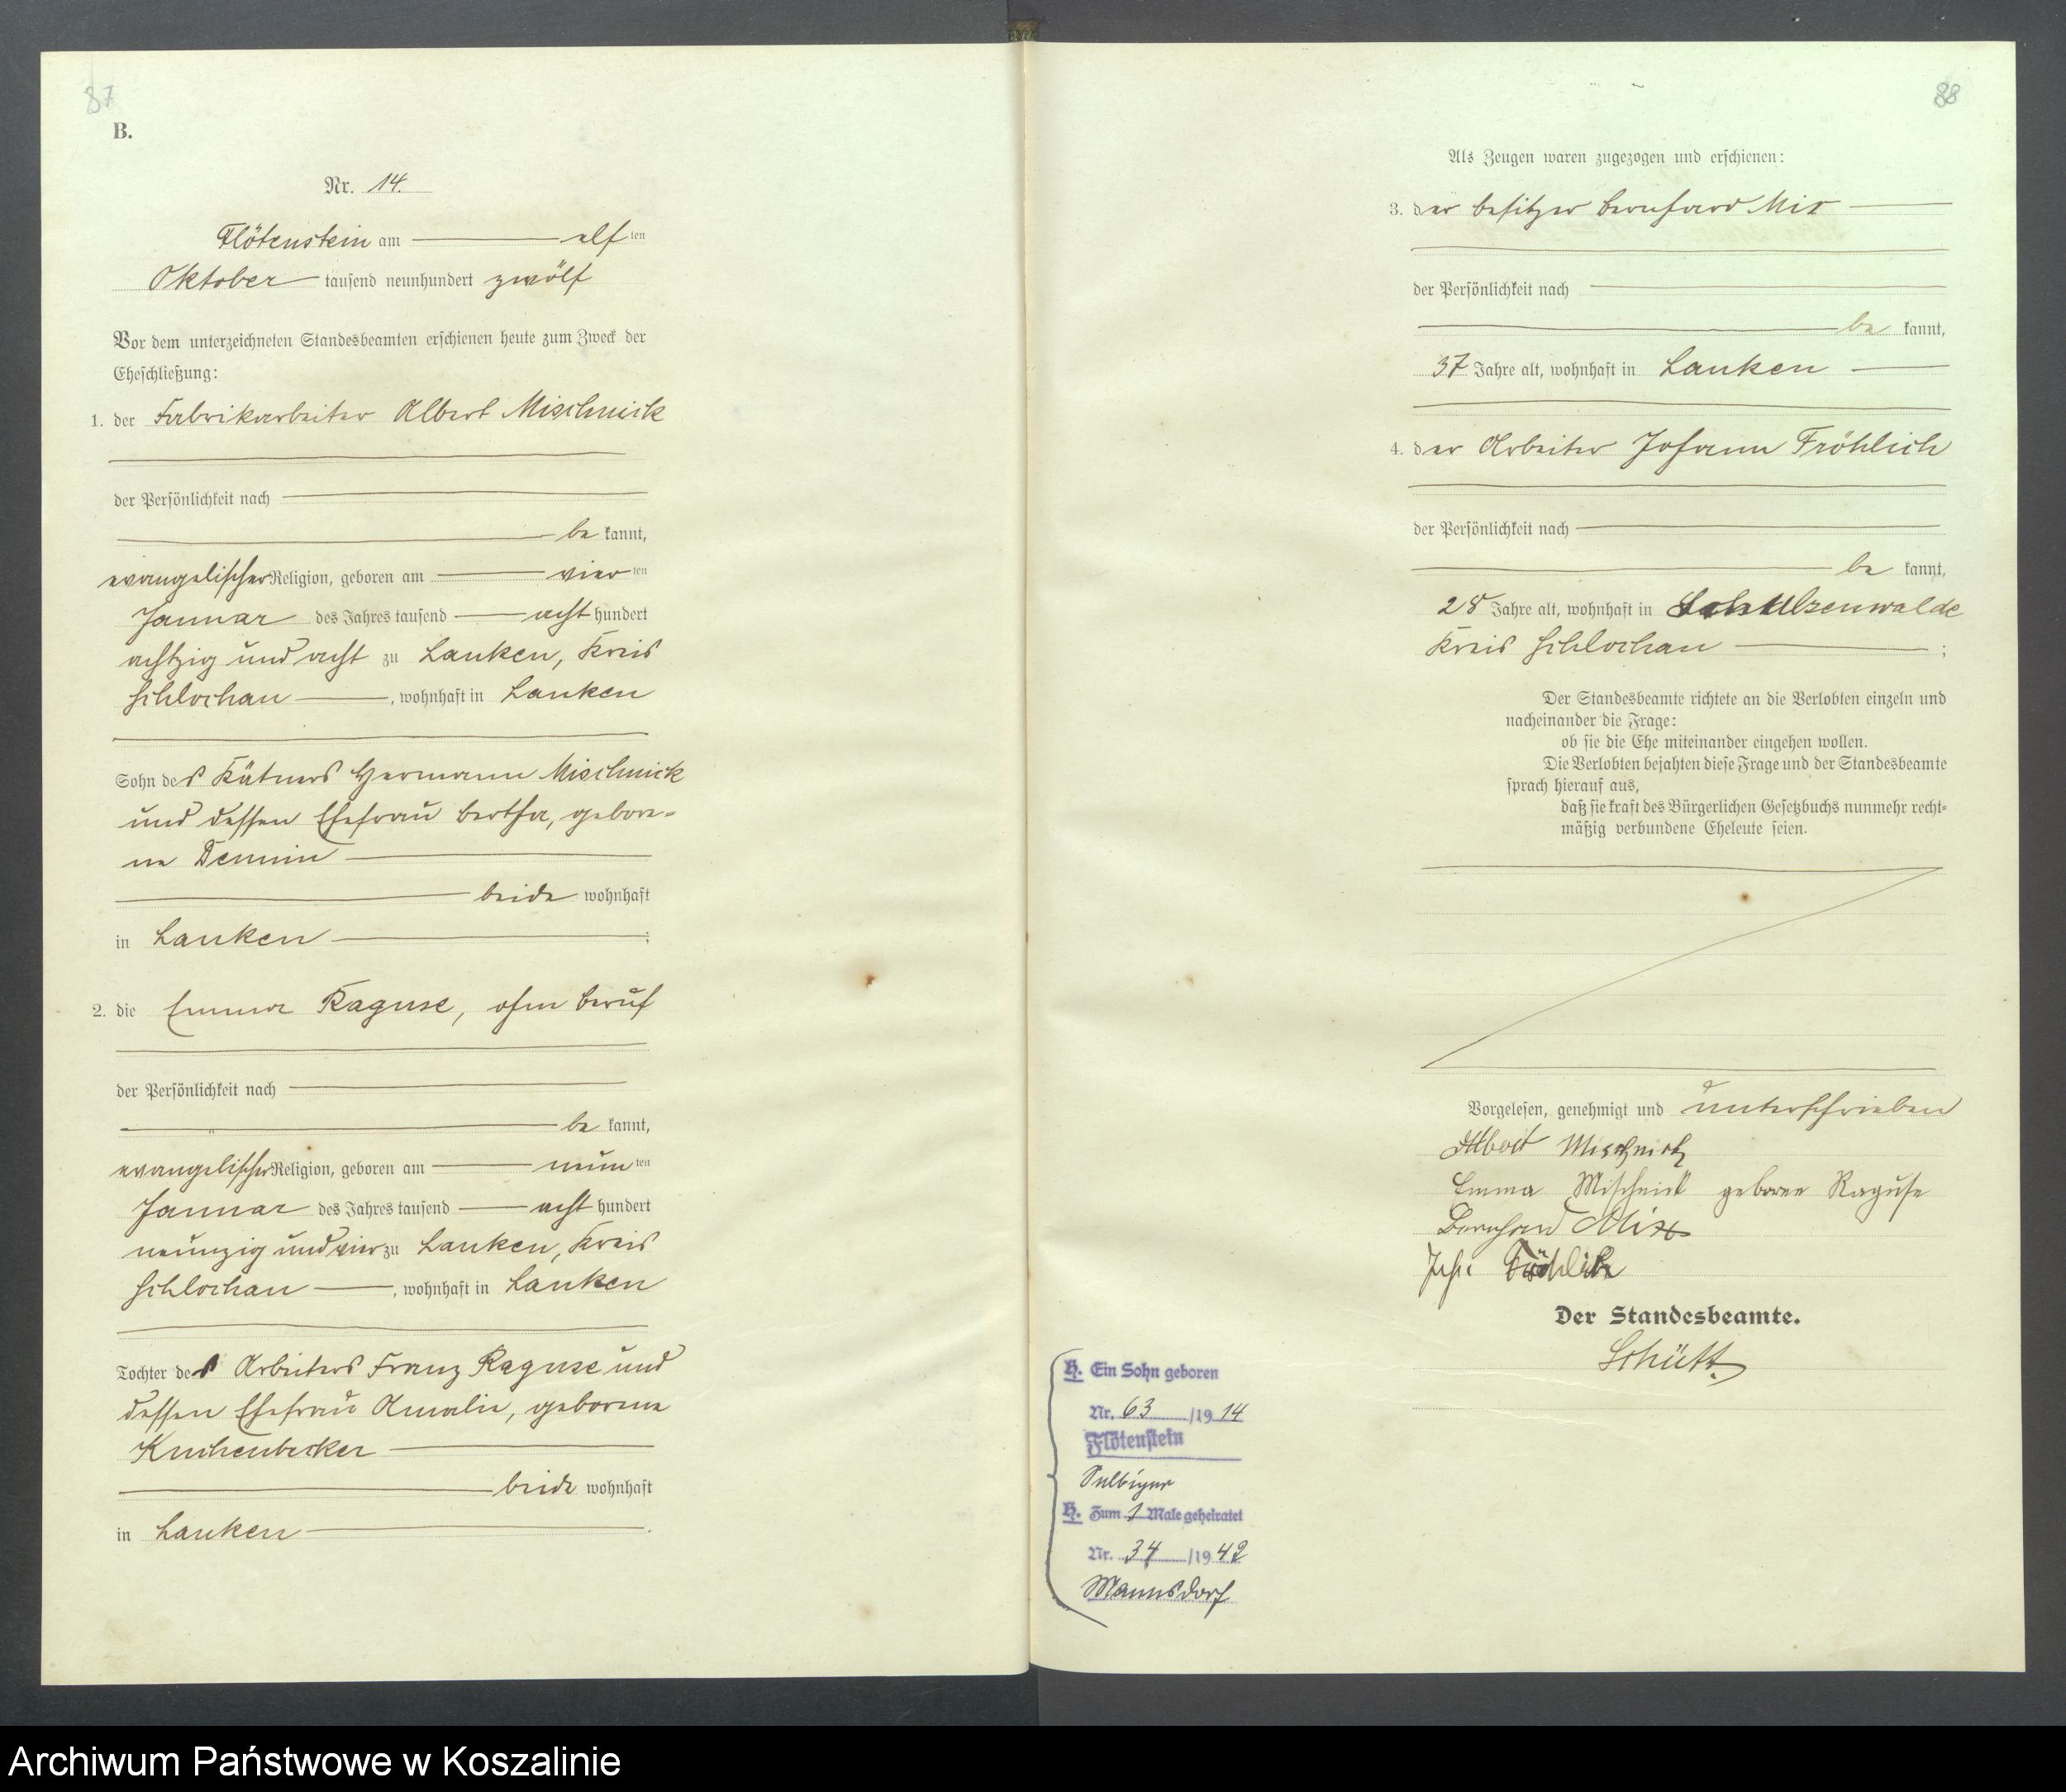 87
B.
Nr. 14.
Flötenstein am elf ten
Oktober tausend neunhundert zwölf
Vor dem unterzeichneten Standesbeamten erschienen heute zum Zweck der
Eheschließung:
1. der Fabrikarbeiter Albert Mischnick
der Persönlichkeit nach
be kannt,
evangelischer Religion, geboren am vier ten
Januar des Jahres tausend acht hundert
achtzig und acht zu Lanken, Kreis
Schlochau, wohnhaft in Lanken
Sohn des Kätners Hermann Mischnick
und dessen Ehefrau Bertha, gebore-
ne Demin
beide wohnhaft
in Lanken ;
2. die Emma Raguse, ohne Beruf
der Persönlichkeit nach
be kannt,
evangelischer Religion, geboren am neun ten
Januar des Jahres tausend acht hundert
neunzig und vier zu Lanken, Kreis
Schlochau, wohnhaft in Lanken
Tochter des Arbeiters Franz Raguse und
dessen Ehefrau Amalie, geborene
Kuchenbecker
beide wohnhaft
in Lanken.
88
Als Zeugen waren zugezogen und erschienen:
3. der Besitzer Bernhard Mix
der Persönlichkeit nach
be kannt,
37 Jahre alt, wohnhaft in Lanken
4. der Arbeiter Johann Fröhlich
der Persönlichkeit nach
be kannt,
28 Jahre alt, wohnhaft in Schulzenwalde
Kreis Schlochau ;
Der Standesbeamte richtete an die Verlobten einzeln und
nacheinander die Frage:
ob sie die Ehe miteinander eingehen wollen.
Die Verlobten bejahten diese Frage und der Standesbeamte
sprach hierauf aus,
daß sie kraft des Bürgerlichen Gesetzbuchs nunmehr recht-
mäßig verbundene Eheleute seien.
Vorgelesen, genehmigt und unterschrieben
Albert Mischnick
Emma Mischnick geboren Raguse
Bernhard Mix
Joh: Fröhlich
Der Standesbeamte.
Schütt.
H. Ein Sohn geboren
Nr. 63 /19 14
Flötenstein
H. Zum 1 Male geheiratet
Nr. 34 /19 42
Mannsdorf
Archiwum Państwowe w Koszalinie